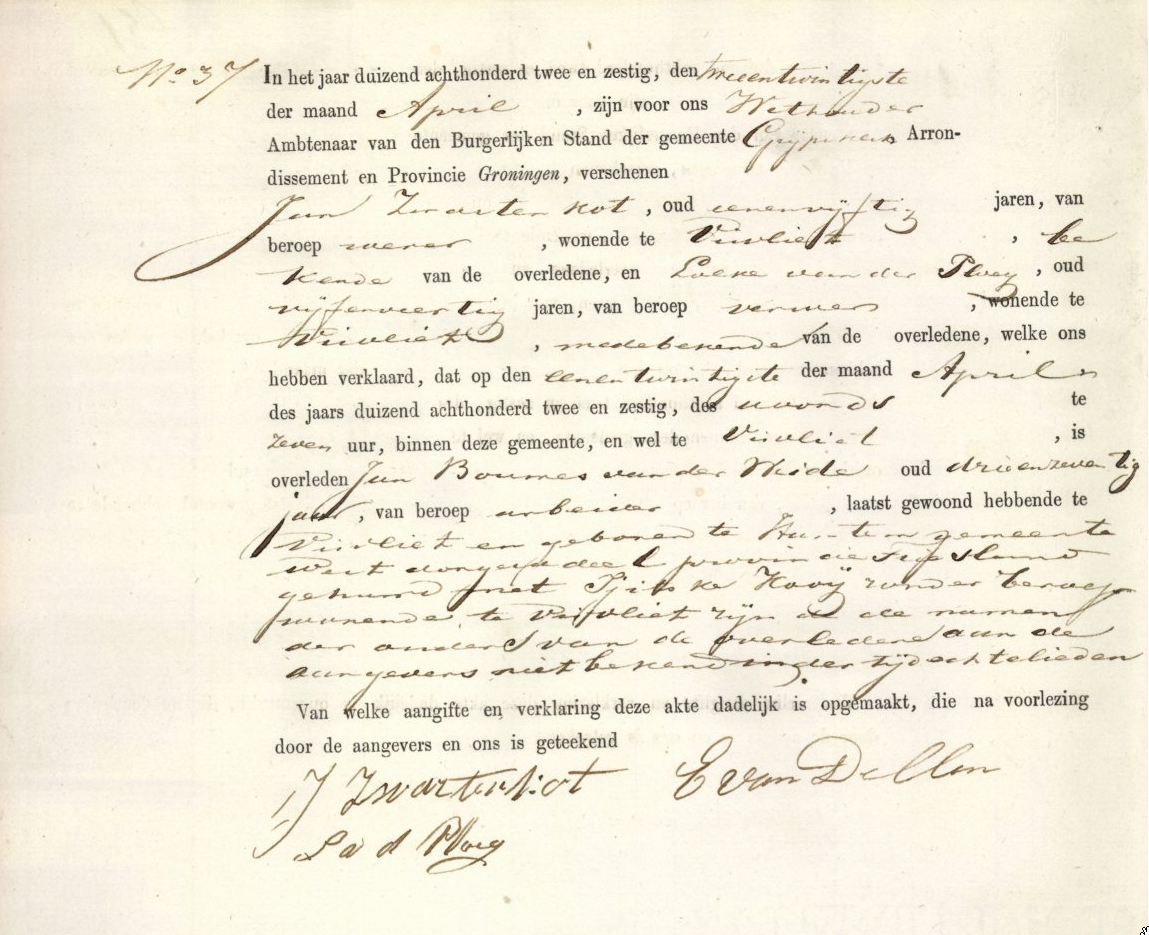 No 37
In het jaar duizend achthonderd twee en zestig, den tweeentwintigste
der maand April , zijn voor ons Wethouder
Ambtenaar van den Burgerlijken Stand der gemeente Grijpskerk Arron-
dissement en Provincie Groningen, verschenen
Jan Zwartenkot , oud eenenvijftig jaren, van
beroep wever , wonende te Visvliet , be
kende van de overledene, en Loeke van der Ploeg , oud
vijfenveertig jaren, van beroep verwer , wonende te
Visvliet , medebekende van de overledene, welke ons
hebben verklaard, dat op den eenentwintigste der maand April
des jaars duizend achthonderd twee en zestig, des avonds te
zeven uur, binnen deze gemeente, en wel te Visvliet , is
overleden Jan Boumes van der Heide oud drieenzeventig
jaar , van beroep arbeider , laatst gewoond hebbende te
Visvliet en geboren te gemeente
West dongeradeel provincie Friesland
gehuurd met Tjitske Kooij zonder beroep
wonende te Visvliet zijn de namen
der ouders van de overledene aan de
aangevers niet bekend in der tijd echtelieden
Van welke aangifte en verklaring deze akte dadelijk is opgemaakt, die na voorlezing
door de aangevers en ons is geteekend
J Zwartenkot E van Dellen
L v d Ploeg